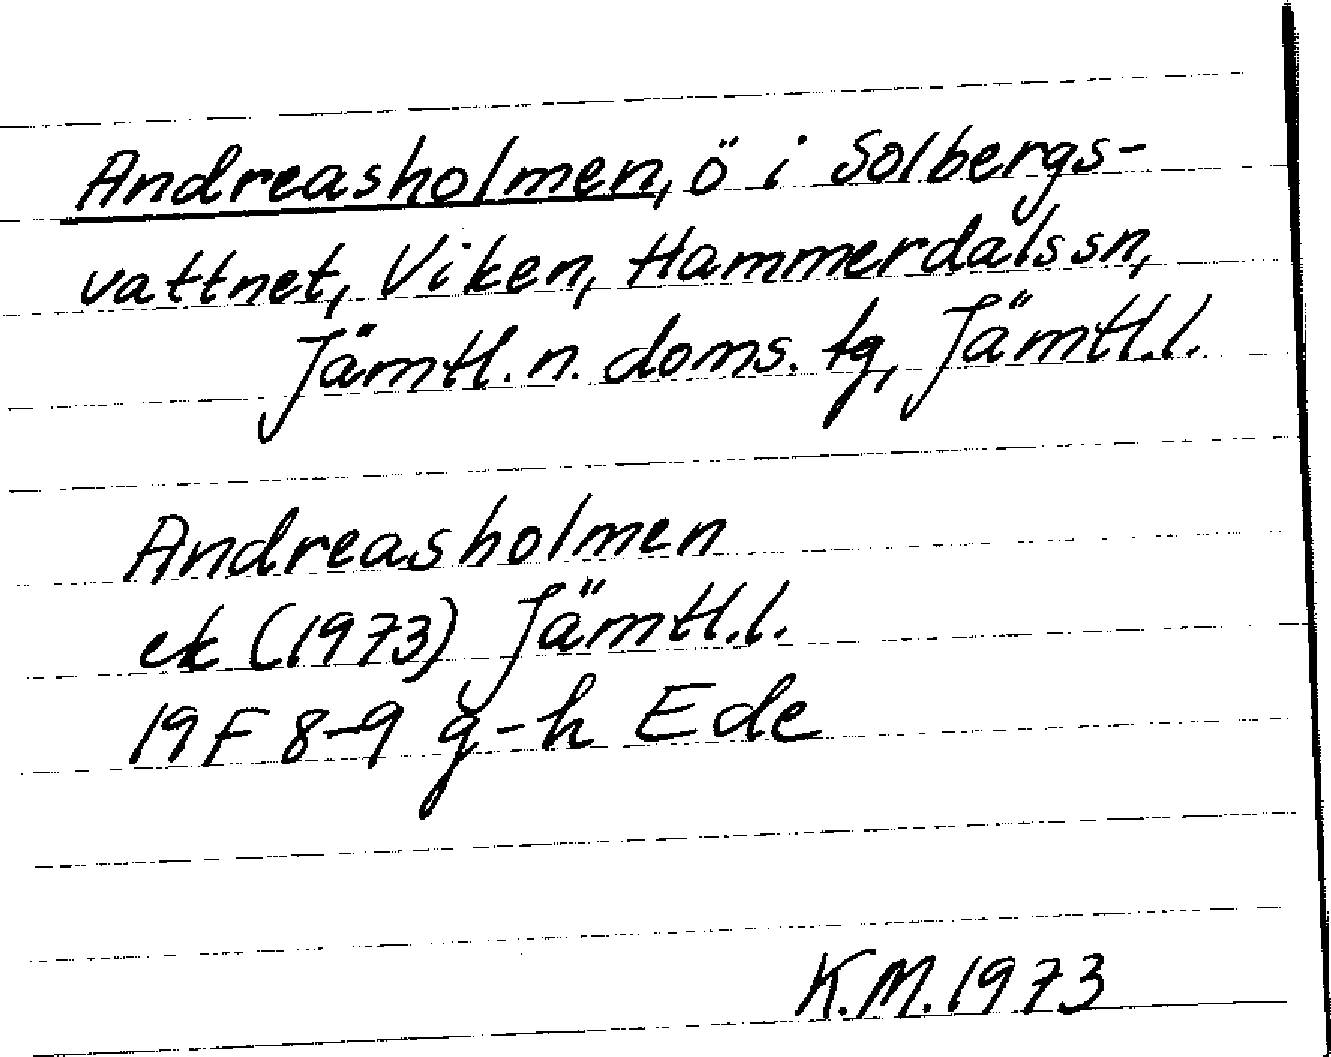 Andreasholmen, ö i Solbergs-
vattnet, Viken, Hammerdals sn,
Jämtl. n. doms. tg, Jämtl.l.
Andreasholmen
ek (1973) Jämtl.l.
19F 8-9 g-h Ede
K.M. 1973